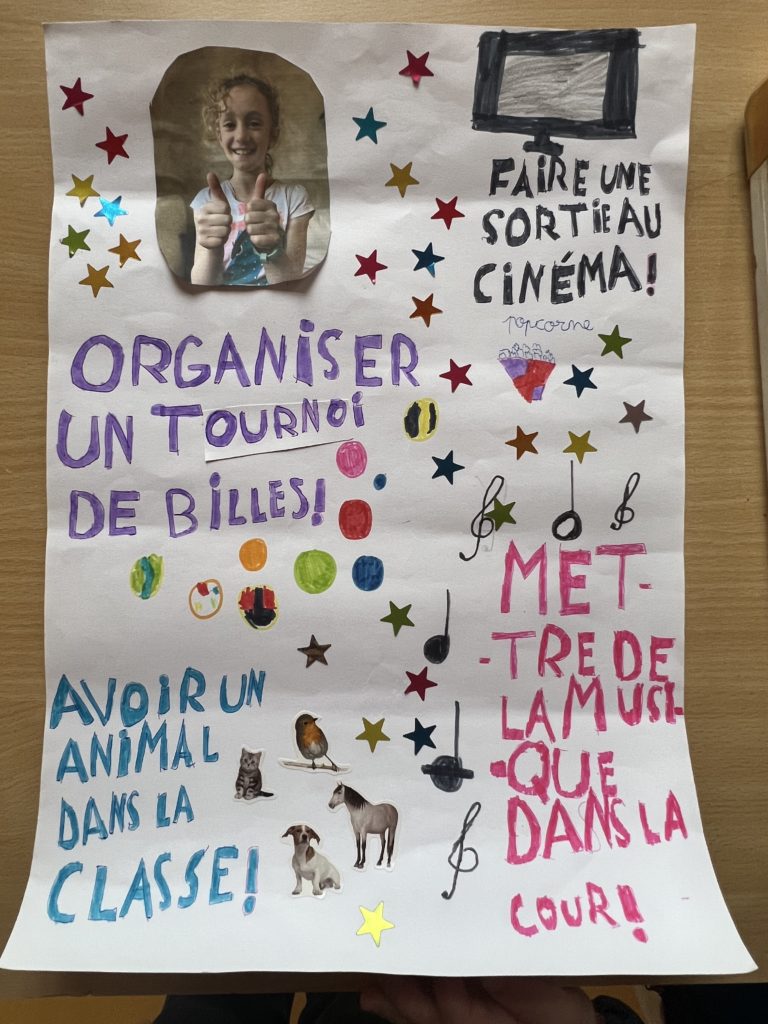 FAIRE UNE
SORTIE AU
CINÉMA!
popcorne
ORGANISER
UN TOURNOI
DE BILLES!
MET-
-TRE DE
LA MUSI-
-QUE
DANS LA
COUR!!
AVOIR UN
ANIMAL
DANS LA
CLASSE!